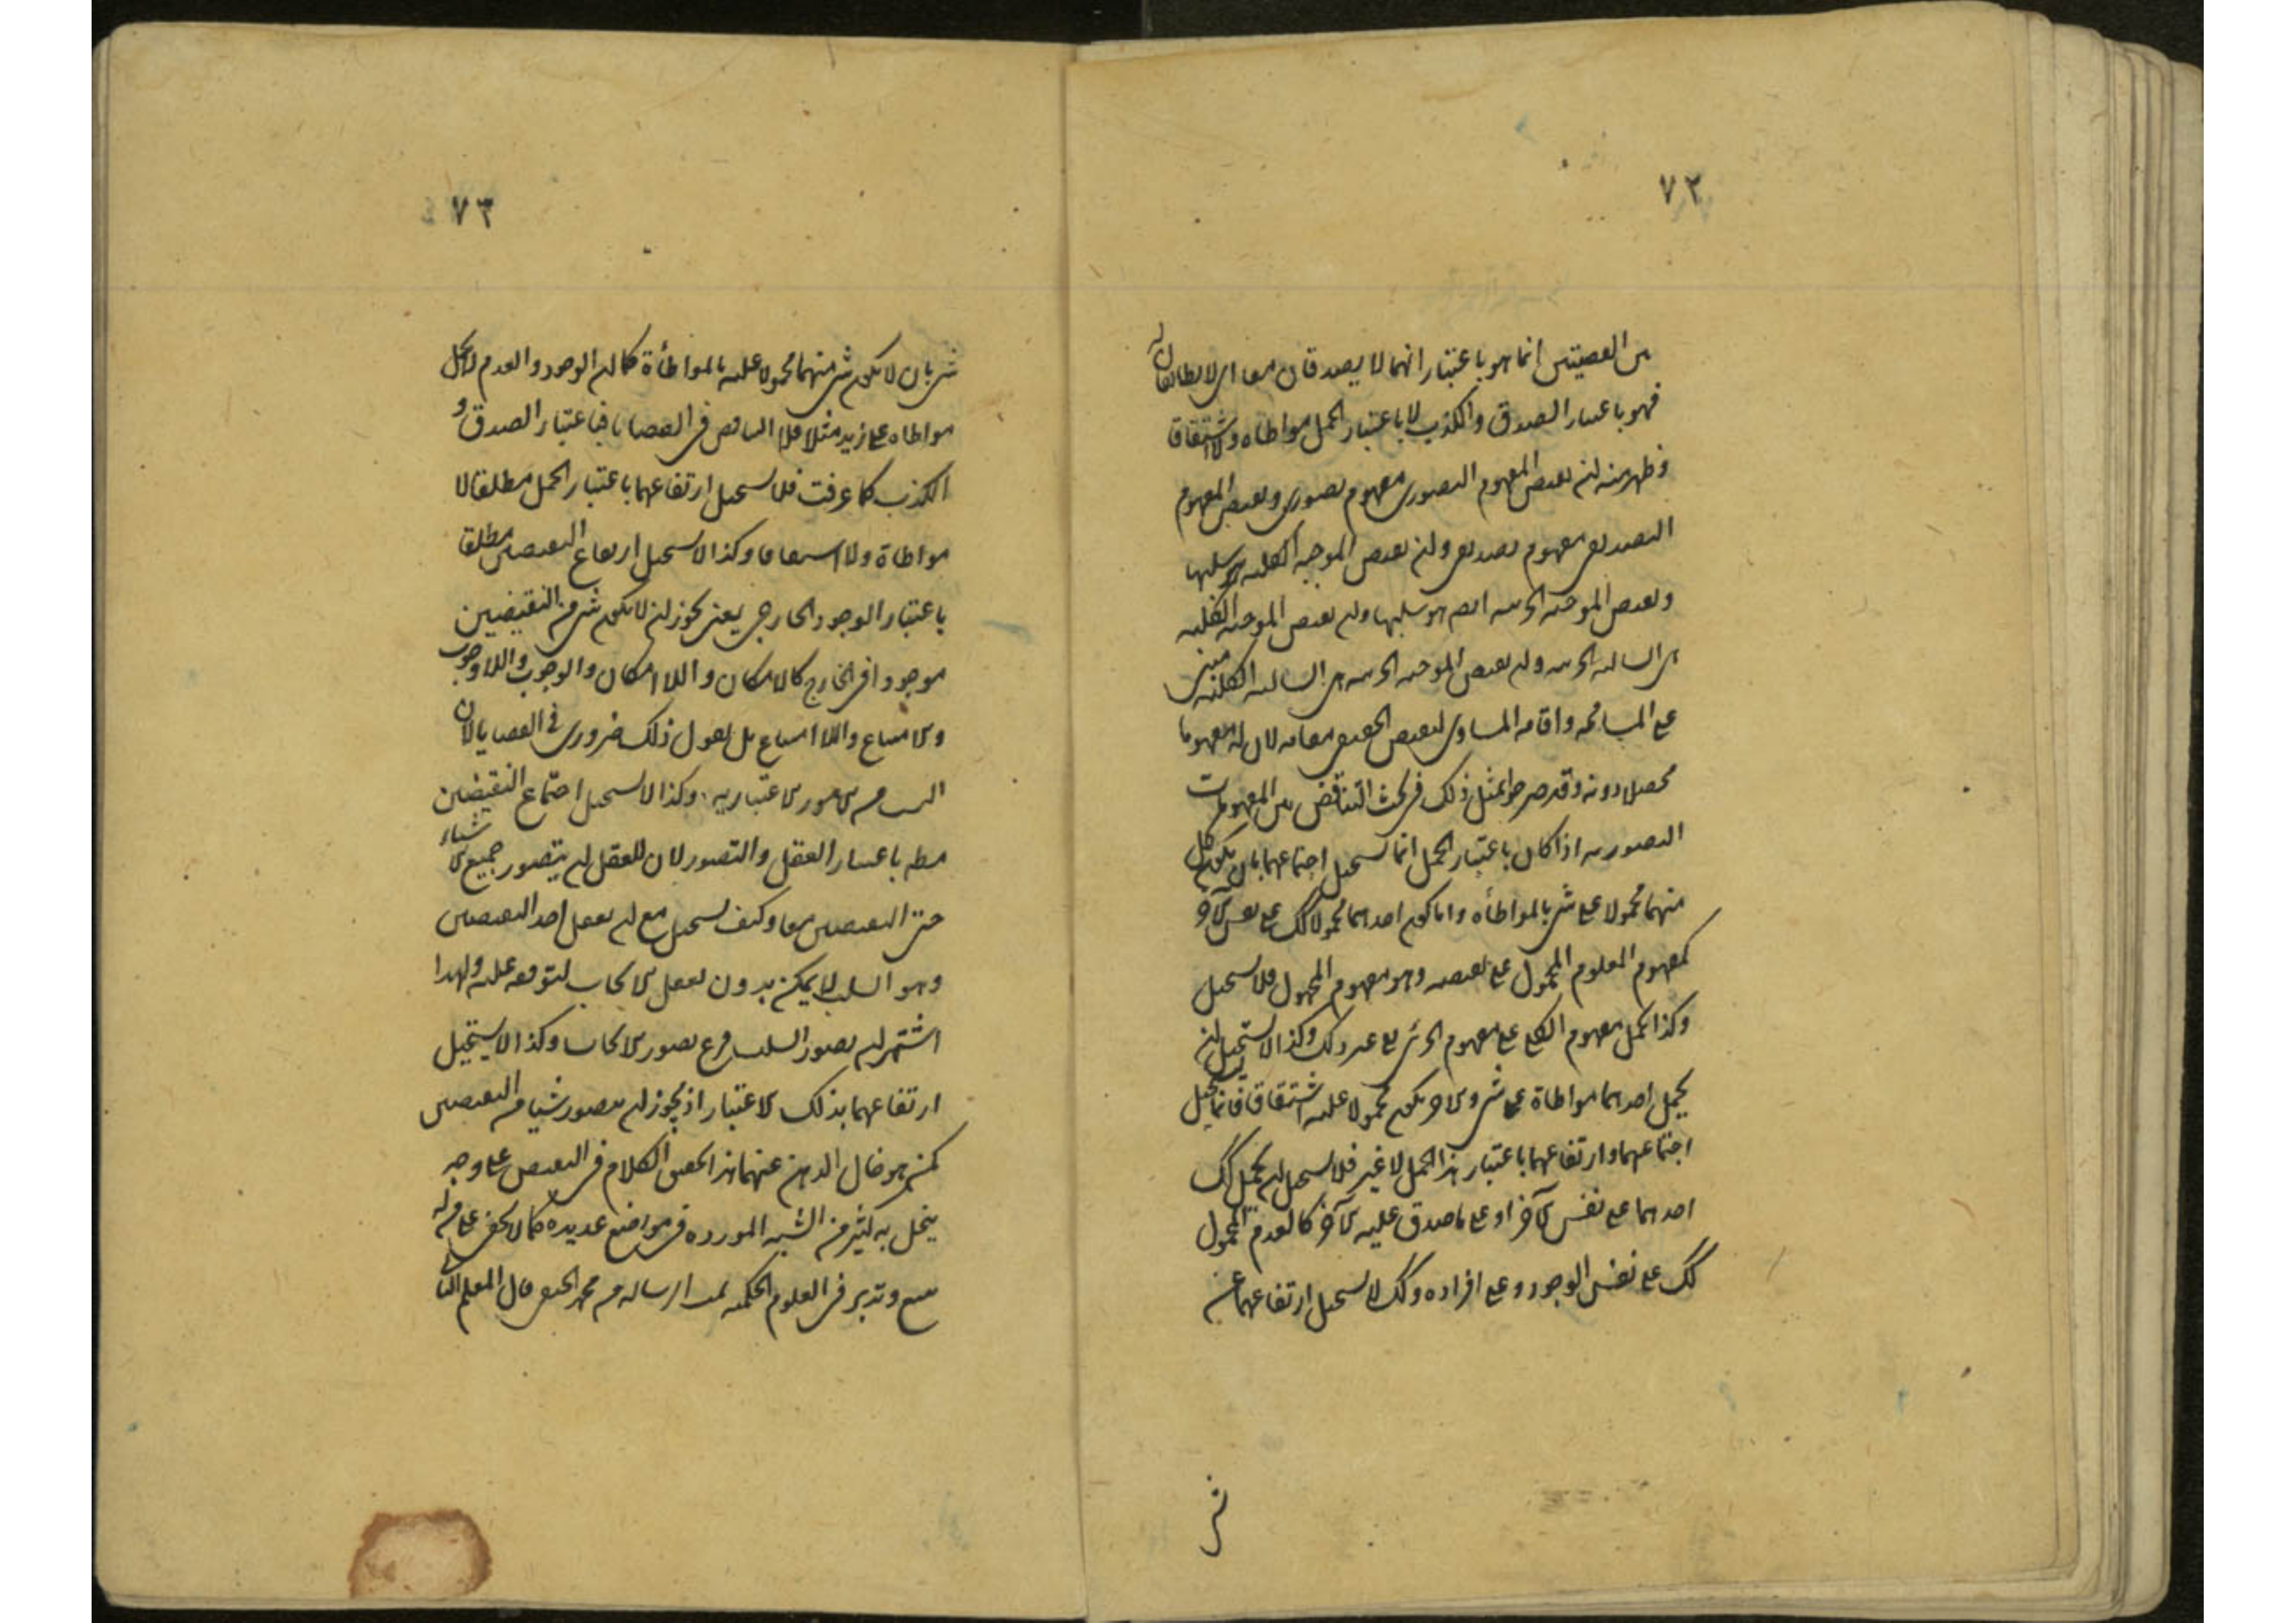 ٧٢
بين القضيتين انما هو باعتبار انهما لا يصدقان معا اى لا يطابقان
فهو باعتبار الصدق والكذب لا باعتبار الحمل مواطاه ولا اشتقاقا
وظهر منه ان نقيض المفهوم التصورى مفهوم تصورى ونقيض المفهوم
التصديقى مفهوم تصديقى وان نقيض الموجبه الكليه سلبها
ونقيض الموجبه الجزئيه ايضا هو سلبها وان نقيض الموجبه الكليه
هى السالبه الجزئيه وان نقيض الموجبه الجزئيه هى السالبه الكليه مبنى
على المسامحه واقامه المساوى لنقيض الحقيقى مقامه لان له مفهوما
محصلا دونه وقد صرحوا بمثل ذلك فى بحث التناقض بين المفهومات
التصوريه اذا كان باعتبار الحمل انما يستحيل اجتماعهما بان يكون كل
منهما محمولا على شى بالمواطأه واما كون احدهما محمولا كك على نفس الآخر
كمفهوم المعلوم المحمول على نقيضه وهو مفهوم المجهول فلا يستحيل
وكذا حمل مفهوم الكلى على مفهوم الجزئى الى غير ذلك وكذا لا يستحيل ان
يحمل احدهما مواطاة على شى والآخر يكون محمولا عليه اشتقاقا فانما يستحيل
اجتماعهما وارتفاعهما باعتبار هذا الحمل لا غير فلا يستحيل ان يحمل كك
احدهما على نفس الآخر او على ما صدق عليه الآخر كالعدم المحمول
كك على نفس الوجود وعلى افراده وكك لا يستحيل ارتفاعهما عن
شى
٧٣
شى بان لا يكون شى منهما محمولا عليه بالمواطأة كما ان الوجود والعدم لا يحمل
مواطاه على زيد مثلا واما التناقض فى القضايا فباعتبار الصدق و
الكذب كما عرفت فلا يستحيل ارتفاعهما باعتبار الحمل مطلقا لا
مواطاة ولا اشتقاقا وكذا لا يستحيل ارتفاع النقيضين مطلقا
باعتبار الوجود الخارجى يعنى يجوز ان لا يكون شى من النقيضين
موجودا فى الخارج كالامكان واللا امكان والوجوب واللا وجوب
والامتناع واللا امتناع بل نقول ذلك ضرورى فى القضايا لان
النسب من الامور الاعتباريه وكذا لا يستحيل اجتماع النقيضين
مطه باعتبار العقل والتصور لان للعقل ان يتصور جميع الاشياء
حتى النقيضين معا وكيف يستحيل مع ان تعقل احد النقيضين
وهو السلب لا يمكن بدون تعقل الايجاب لتوقفه عليه ولهذا
اشتهر ان تصور السلب فرع تصور الايجاب وكذا لا يستحيل
ارتفاعهما بذلك الاعتبار اذ يجوز ان يتصور شيئا من النقيضين
كمن هو خال الذهن عنهما هذا تحقيق الكلام فى النقيض على وجه
ينحل به كثير من الشبه المورده فى مواضع عديده كما لا يخفى على من له
تتبع وتدبر فى العلوم الحكميه تمت الرساله قال المعلم الثا